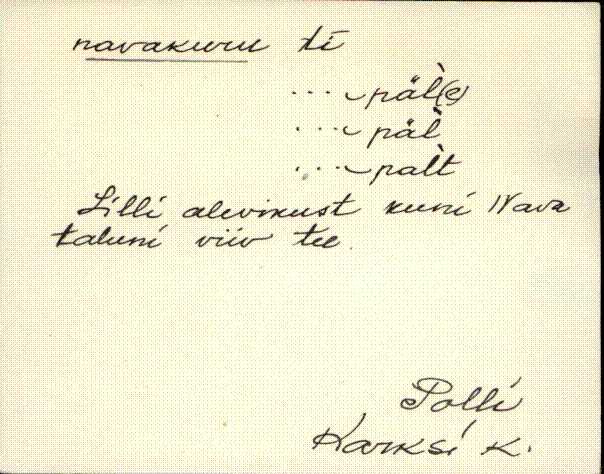 navakuru tí
... päl̀(e)
... päl̀
... pal̀t
Lilli alevikust kuni Nava
taluni viiv tee.
Polli
Karksi k.